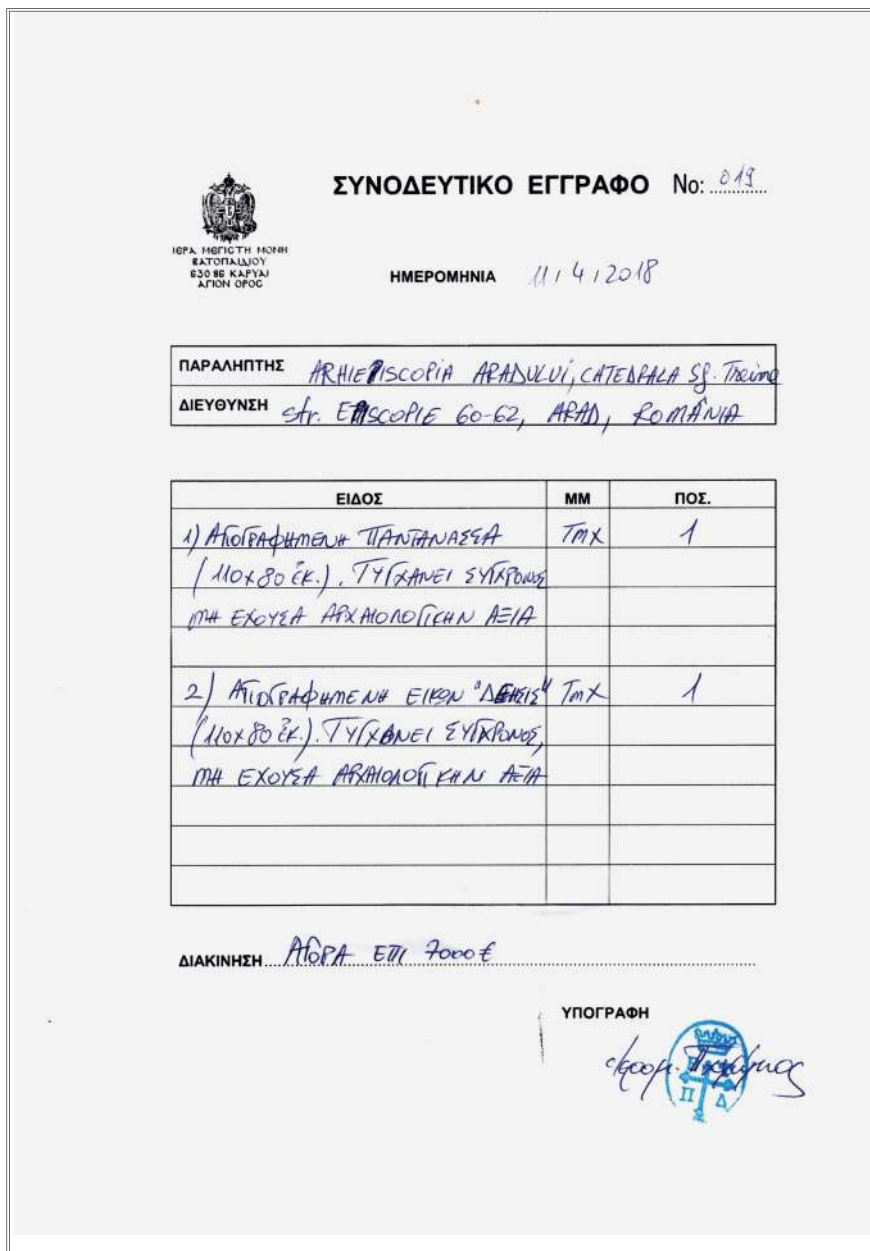 ΣΥΝΟΔΕΥΤΙΚΟ ΕΓΓΡΑΦΟ No: 019
ΙΕΡΑ ΜΕΓΙΣΤΗ ΜΟΝΗ
ΒΑΤΟΠΑΙΔΙΟΥ
630 86 ΚΑΡΥΑΙ
ΑΓΙΟΝ ΟΡΟΣ
ΗΜΕΡΟΜΗΝΙΑ 11/4/2018
ΠΑΡΑΛΗΠΤΗΣ ARHIEPISCOPIA ARADULUI, CATEDRALA Sf. Treime
ΔΙΕΥΘΥΝΣΗ str. EPISCOPIE 60-62, ARAD, ROMÂNIA
ΕΙΔΟΣ ΜΜ ΠΟΣ.
1) ΑΓΙΟΓΡΑΦΗΜΕΝΗ ΠΑΝΤΑΝΑΣΣΑ Τmx 1
(110x80 εκ.). ΤΥΓΧΑΝΕΙ ΣΥΓΧΡΟΝΟΣ
ΜΗ ΕΧΟΥΣΑ ΑΡΧΑΙΟΛΟΓΙΚΗΝ ΑΞΙΑ
2) ΑΓΙΟΓΡΑΦΗΜΕΝΗ ΕΙΚΩΝ "ΔΕΗΣΙΣ" Τmx 1
(110x80 εκ.). ΤΥΓΧΑΝΕΙ ΣΥΓΧΡΟΝΟΣ,
ΜΗ ΕΧΟΥΣΑ ΑΡΧΑΙΟΛΟΓΙΚΗΝ ΑΞΙΑ
ΔΙΑΚΙΝΗΣΗ ΑΓΟΡΑ ΕΠΙ 7000 €
ΥΠΟΓΡΑΦΗ
Π Δ